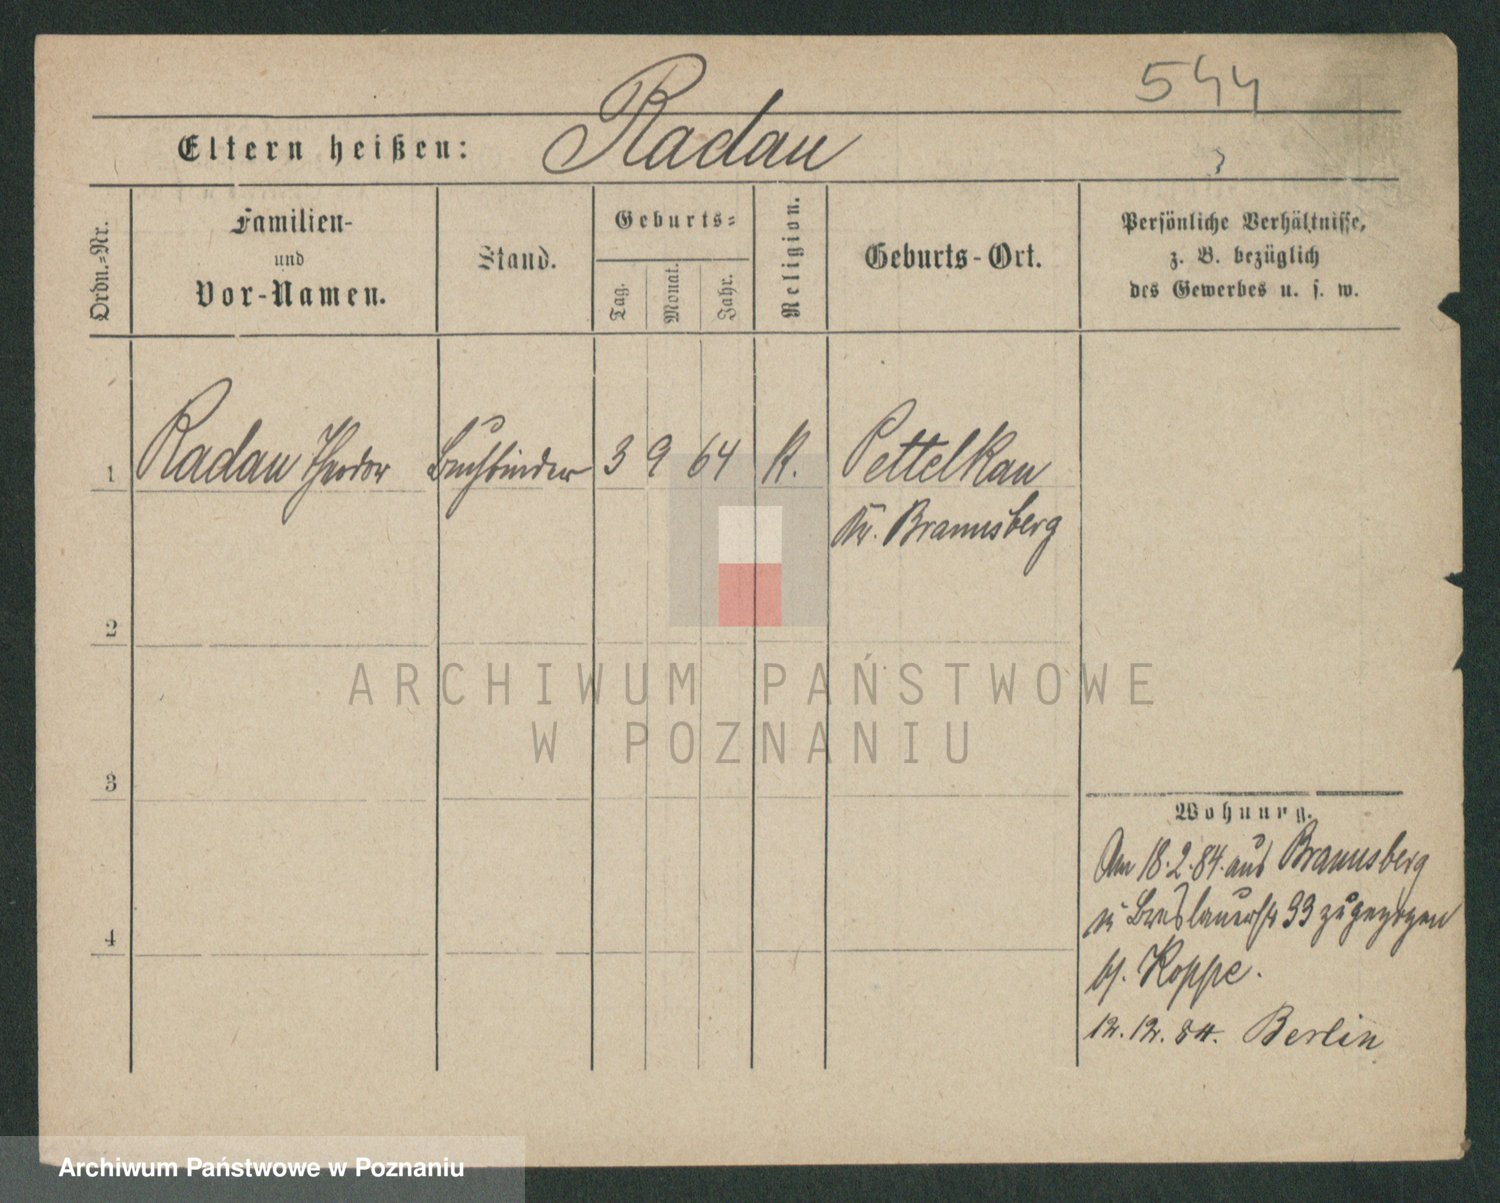 544
Eltern heißen: Radau
Ordn.-Nr.
Familien-
und
Vor-Namen.
Stand.
Geburts-
Tag.
Monat.
Jahr.
Religion.
Geburts-Ort.
Persönliche Verhältnisse,
z. B. bezüglich
des Gewerbes u. s. w.
1 Radau Theodor Buchbinder 3 9 64 K. Pettelkau
Kr. Braunsberg
2
3
4
Wohnung.
Am 18.2.84. aus Braunsberg
n. Breslauerstr 33 zugezogen
bei Koppe.
12.12.84. Berlin
ARCHIWUM PAŃSTWOWE
W POZNANIU
Archiwum Państwowe w Poznaniu